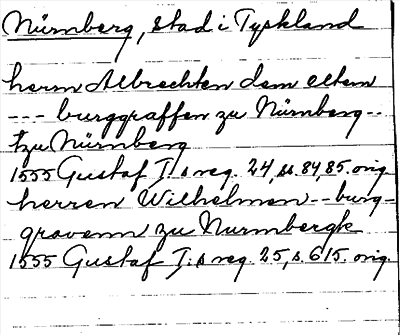 Nürnberg, stad i Tyskland
herrn Albrechten dem eltern
--- burggraffen zu Nürmberg--
tzu Nürmberg
1555 Gustaf I:s reg. 24, ss. 84, 85. orig.
herren Wilhelmen -- burg-
gravenn zu Nurmbergk
1555 Gustaf I:s reg. 25, s. 615. orig.